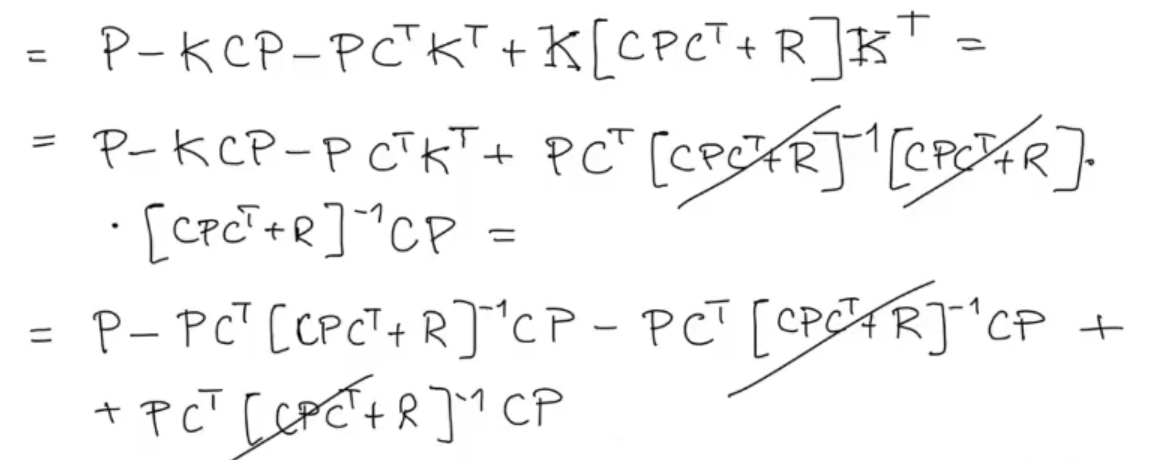 = P - KCP - PCᵀKᵀ + K[CPCᵀ + R]Kᵀ =
= P - KCP - PCᵀKᵀ + PCᵀ[CPCᵀ + R]⁻¹[CPCᵀ + R]·
· [CPCᵀ + R]⁻¹CP =
= P - PCᵀ[CPCᵀ + R]⁻¹CP - PCᵀ[CPCᵀ + R]⁻¹CP +
+ PCᵀ[CPCᵀ + R]⁻¹CP